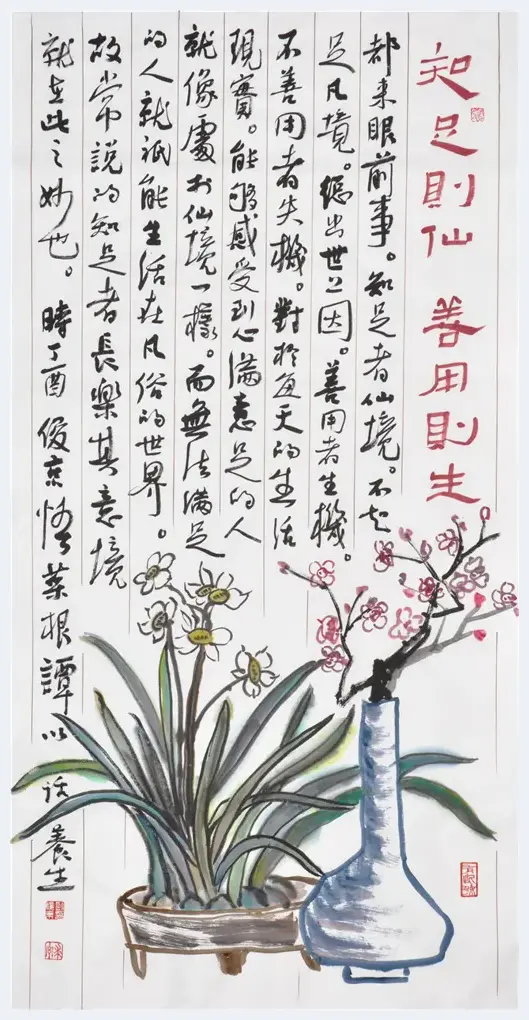 知足則仙 善用則生
都来眼前事。知足者仙境。不知
足凡境。總出世上因。善用者生機。
不善用者失機。對於每天的生活
現實。能夠感受到心滿意足的人
就像處於仙境一樣。而無法滿足
的人就祇能生活在凡俗的世界。
故常說的知足者長樂其意境
就在此之妙也。時丁酉俊京悟菜根譚以話養生